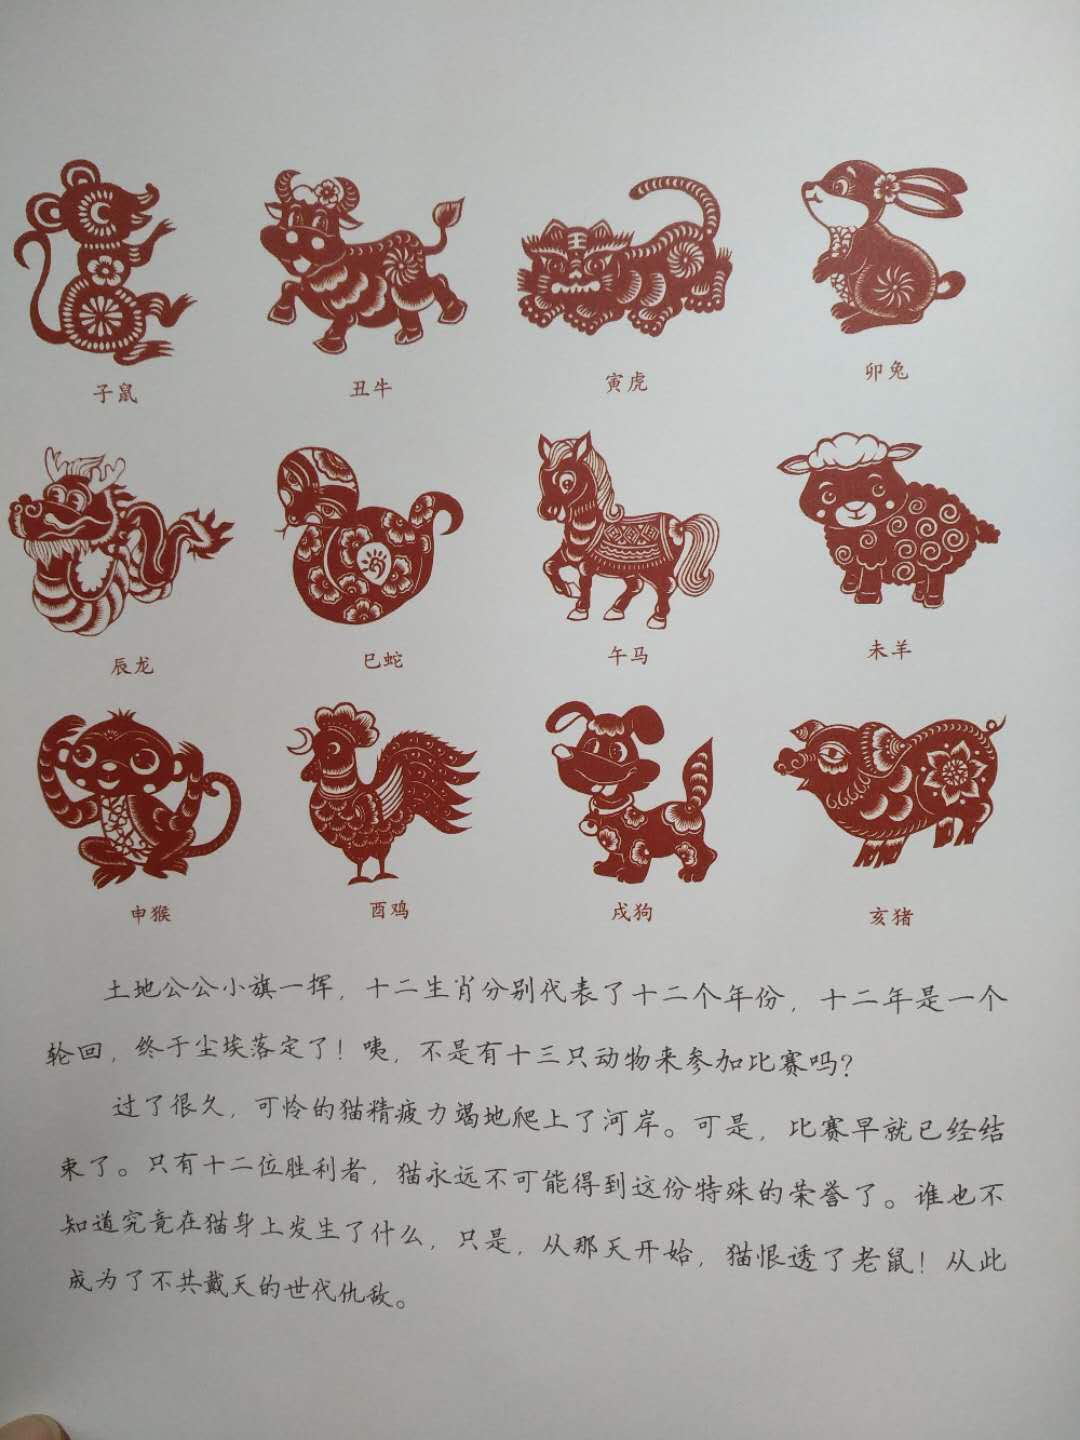 子鼠 丑牛 寅虎 卯兔
辰龙 巳蛇 午马 未羊
申猴 酉鸡 戌狗 亥猪
土地公公小旗一挥，十二生肖分别代表了十二个年份，十二年是一个
轮回，终于尘埃落定了！咦，不是有十三只动物来参加比赛吗？
过了很久，可怜的猫精疲力竭地爬上了河岸。可是，比赛早就已经结
束了。只有十二位胜利者，猫永远不可能得到这份特殊的荣誉了。谁也不
知道究竟在猫身上发生了什么，只是，从那天开始，猫恨透了老鼠！从此
成为了不共戴天的世代仇敌。